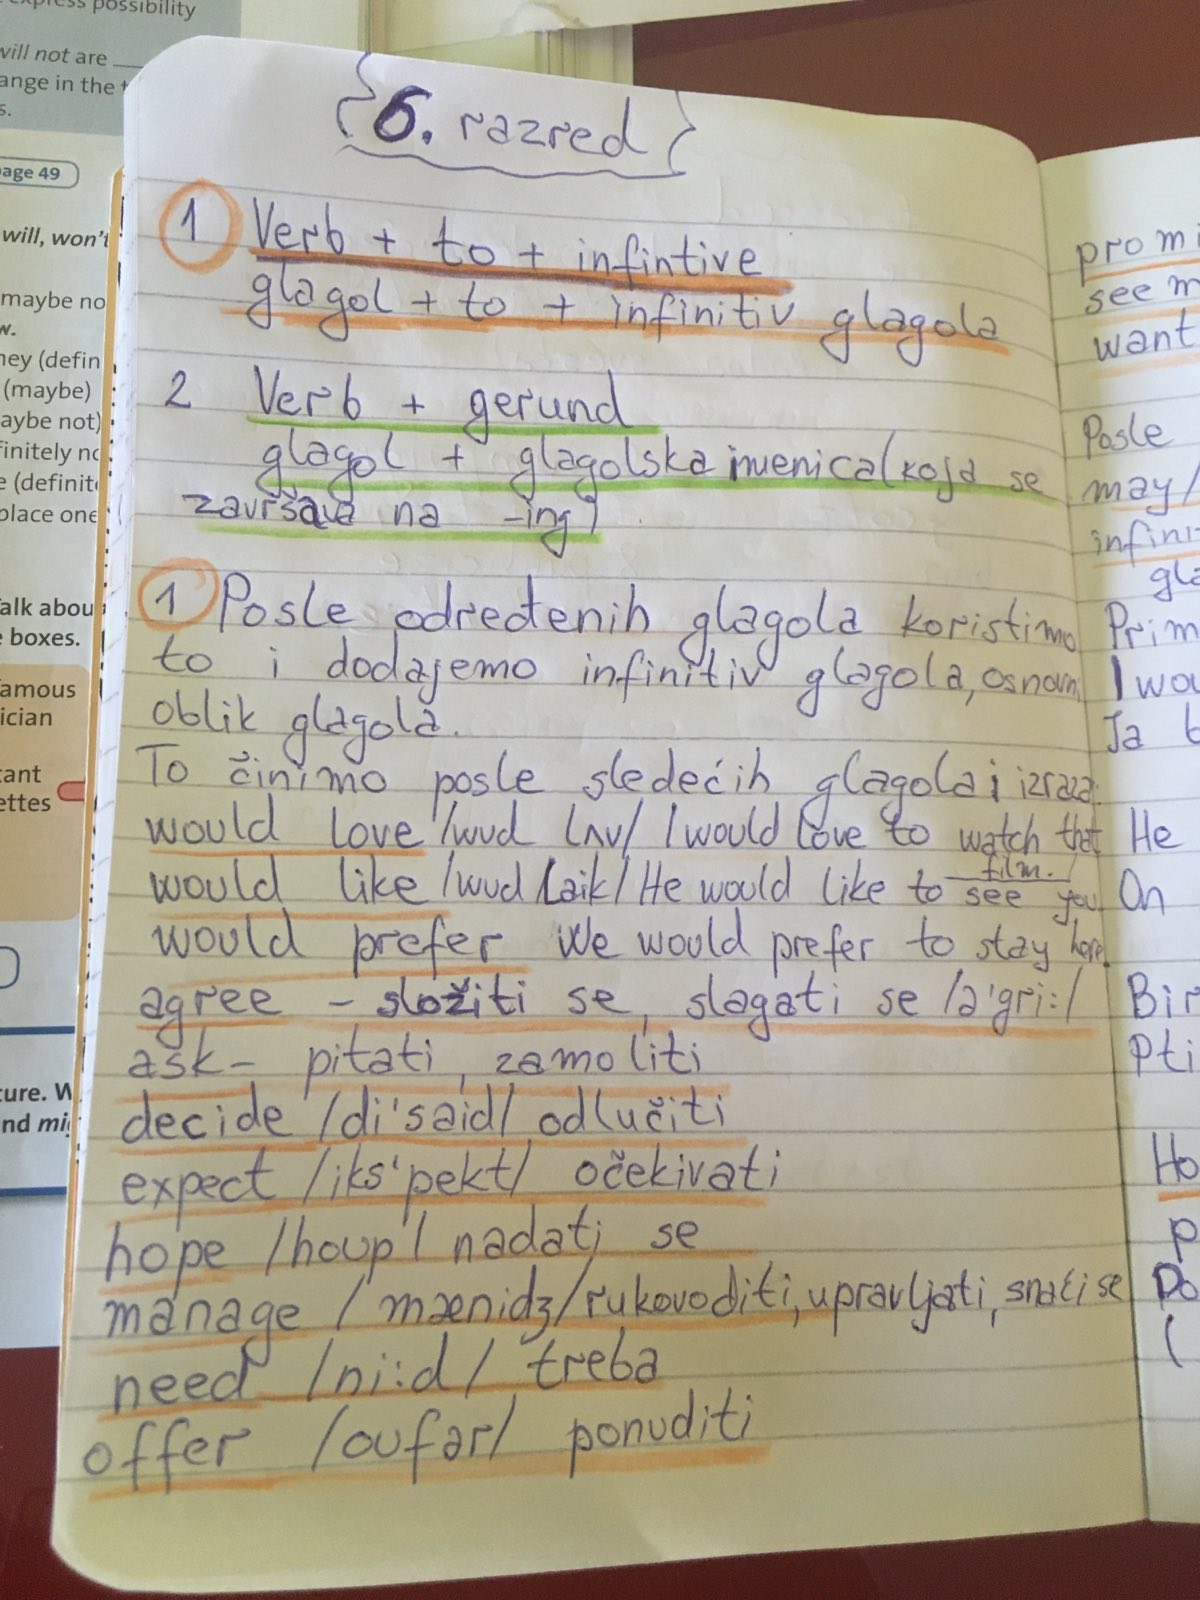 express possibility
will not are
ange in the
s.
age 49
will, won't
maybe no
w.
hey (defin
(maybe)
aybe not)
finitely no
e (definit
place one
Talk abou
e boxes.
famous
ician
tant
ettes
ture. W
nd mig
6. razred
1 Verb + to + infintive
glagol + to + infinitiv glagola
2 Verb + gerund
glagol + glagolska imenica (koja se
završava na -ing)
1 Posle određenih glagola koristimo
to i dodajemo infinitiv glagola, osnovni
oblik glagola.
To činimo posle sledećih glagola i izraza:
would love /wud lʌv/ I would love to watch that
film.
would like /wud laik/ He would like to see you.
would prefer We would prefer to stay here.
agree - složiti se, slagati se /ə'gri:/
ask - pitati, zamoliti
decide /di'said/ odlučiti
expect /iks'pekt/ očekivati
hope /houp/ nadati se
manage /mænidʒ/ rukovoditi, upravljati, snaći se
need /ni:d/ treba
offer /oufər/ ponuditi
promi
see m
want
Posle
may/
infini
gla
Prim
I wou
Ja b
He
On
Bir
Pti
Ho
p
Do
(